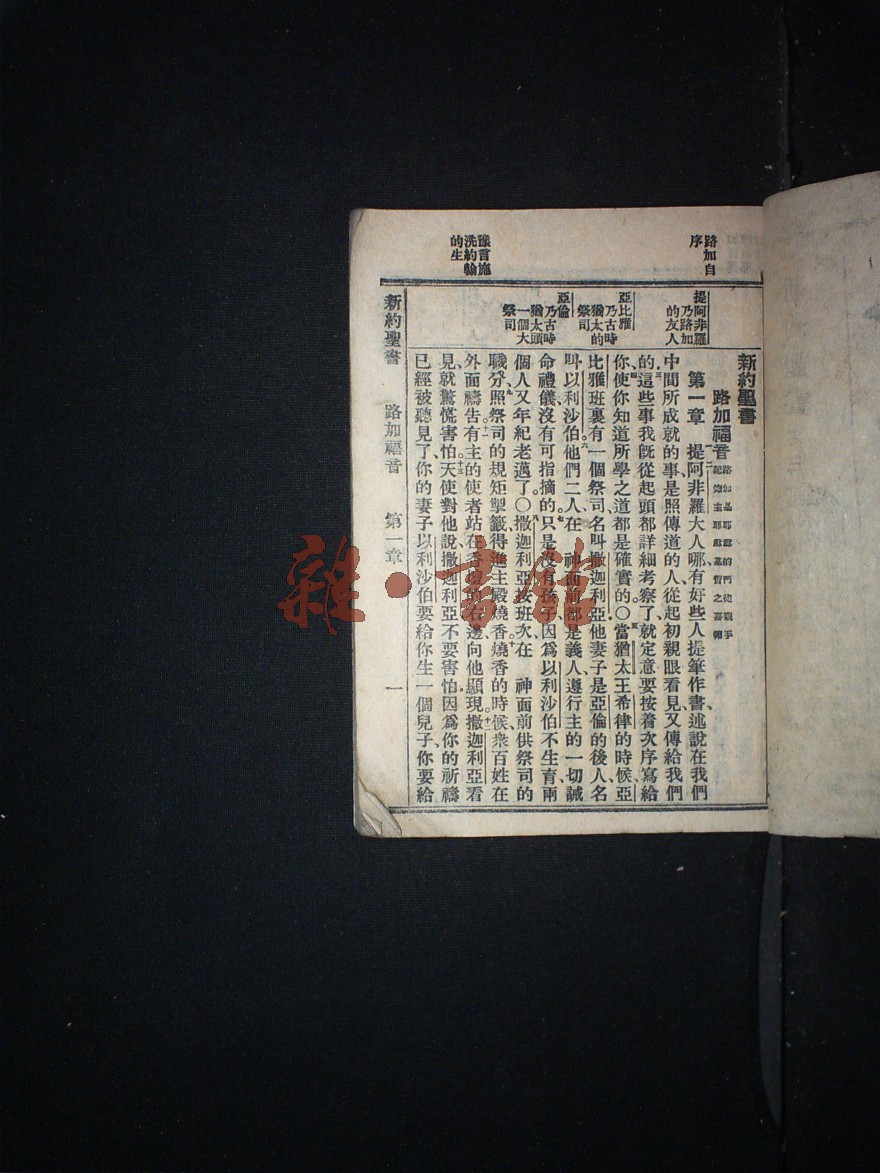 路加自
序
豫言施
洗約翰
的生
提阿非羅
乃路加
的友人
亞比雅
乃古時
猶太的
祭司
亞倫
乃古時
猶太頭
一個大
祭司
新約聖書
路加福音 路加是耶穌的門徒親手
記錄主耶穌基督之喜報
第一章 提阿非羅大人哪、有好些人提筆作書、述說在我們
中間所成就的事、是照傳道的人、從起初親眼看見、又傳給我們
的、這些事我旣從起頭都詳細考察了、就定意要按着次序寫給
你、使你知道所學之道都是確實的。〇當猶太王希律的時候、亞
比雅班裏有一個祭司、名叫撒迦利亞、他妻子是亞倫的後人、名
叫以利沙伯。他們二人、在 神面前都是義人、遵行主的一切誡
命禮儀、沒有可指摘的。只是沒有孩子、因爲以利沙伯不生育、兩
個人又年紀老邁了。〇撒迦利亞按班次、在 神面前供祭司的
職分、照祭司的規矩掣籤、得進主殿燒香。燒香的時候、衆百姓在
外面禱告。有主的使者站在香壇的右邊、向他顯現。撒迦利亞看
見、就驚慌害怕。天使對他說、撒迦利亞、不要害怕、因爲你的祈禱
已經被聽見了、你的妻子以利沙伯要給你生一個兒子、你要給
新約聖書 路加福音 第一章 一
雜·書館